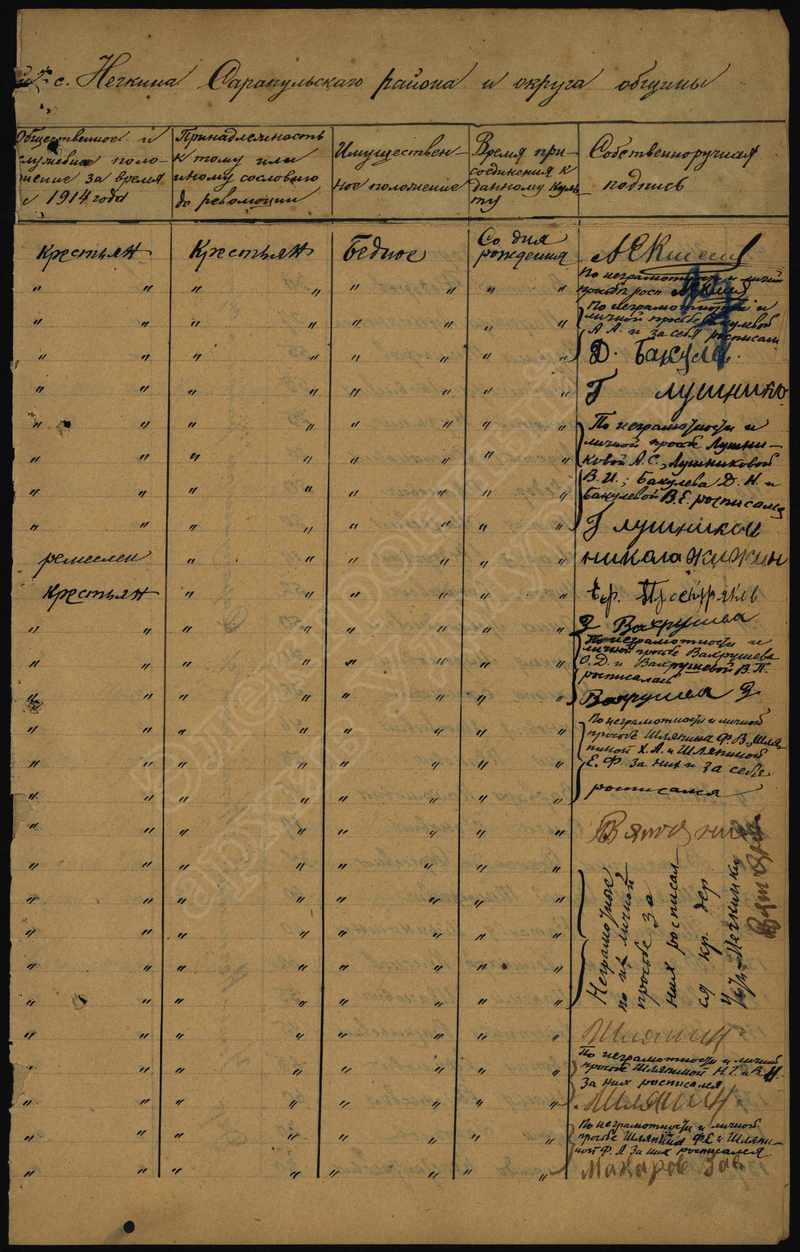 с. Нечкина Сарапульскаго района и округа общины
Общественное и
служебное поло-
жение за время
с 1914 года
Принадлежность
к тому или
иному сословию
до революции
Имуществен-
ное положение
Время при-
соединения к
данному куль-
ту
Собственноручная
подпись
Крестьян Крестьян Бедное Со дня
рождения
По неграмотности и личной
просьбе росп
" " " " " " " "
По неграмотности и
личной просьбе
А А и за себя росписал
" " " " " " " "
" " " " " " " " Д. Бакулев.
" " " " " " " " Г лушнико
По неграмотности и
личной просьбе Лушни-
ковой А.С., Лушниковой
В.И.; Бакулева Д.Н. и
Бакулевой В.Е. росписался
" " " " " " " "
" " " " " " " "
" " " " " " " "
" " " " " " " " Г лушников
ремеслен " " " " " " никола жижин
Крестьян " " " " " "
" " " " " " " " Вахрушев
По неграмотности и
личной просьбе Вахрушева
О.Д. и Вахрушевой В.П.
росписалась
" " " " " " " "
" " " " " " " " Вахрушев
По неграмотности и личной
просьбе Шляпина Ф.В., Шля-
пиной Х.А. и Шляпиной
Е.Ф. за них и за себе
росписался
" " " " " " " "
" " " " " " " "
" " " " " " " "
" " " " " " " "
Неграмотное
по их личной
просьбе за
них росписал-
ся кр. дер
Нечкинку
" " " " " " " "
" " " " " " " "
" " " " " " " "
" " " " " " " "
" " " " " " " "
" " " " " " " " Шляпин
По неграмотности и личной
просьбе Шляпиной Н.Т. и В.И.
За них росписался
" " " " " " " "
" " " " " " " " Шляпин
По неграмотности и личной
просьбе Шляпина Ф.Е. и Шляпи-
ной Ф. А за них росписался
" " " " " " " "
" " " " " " " " Макаров